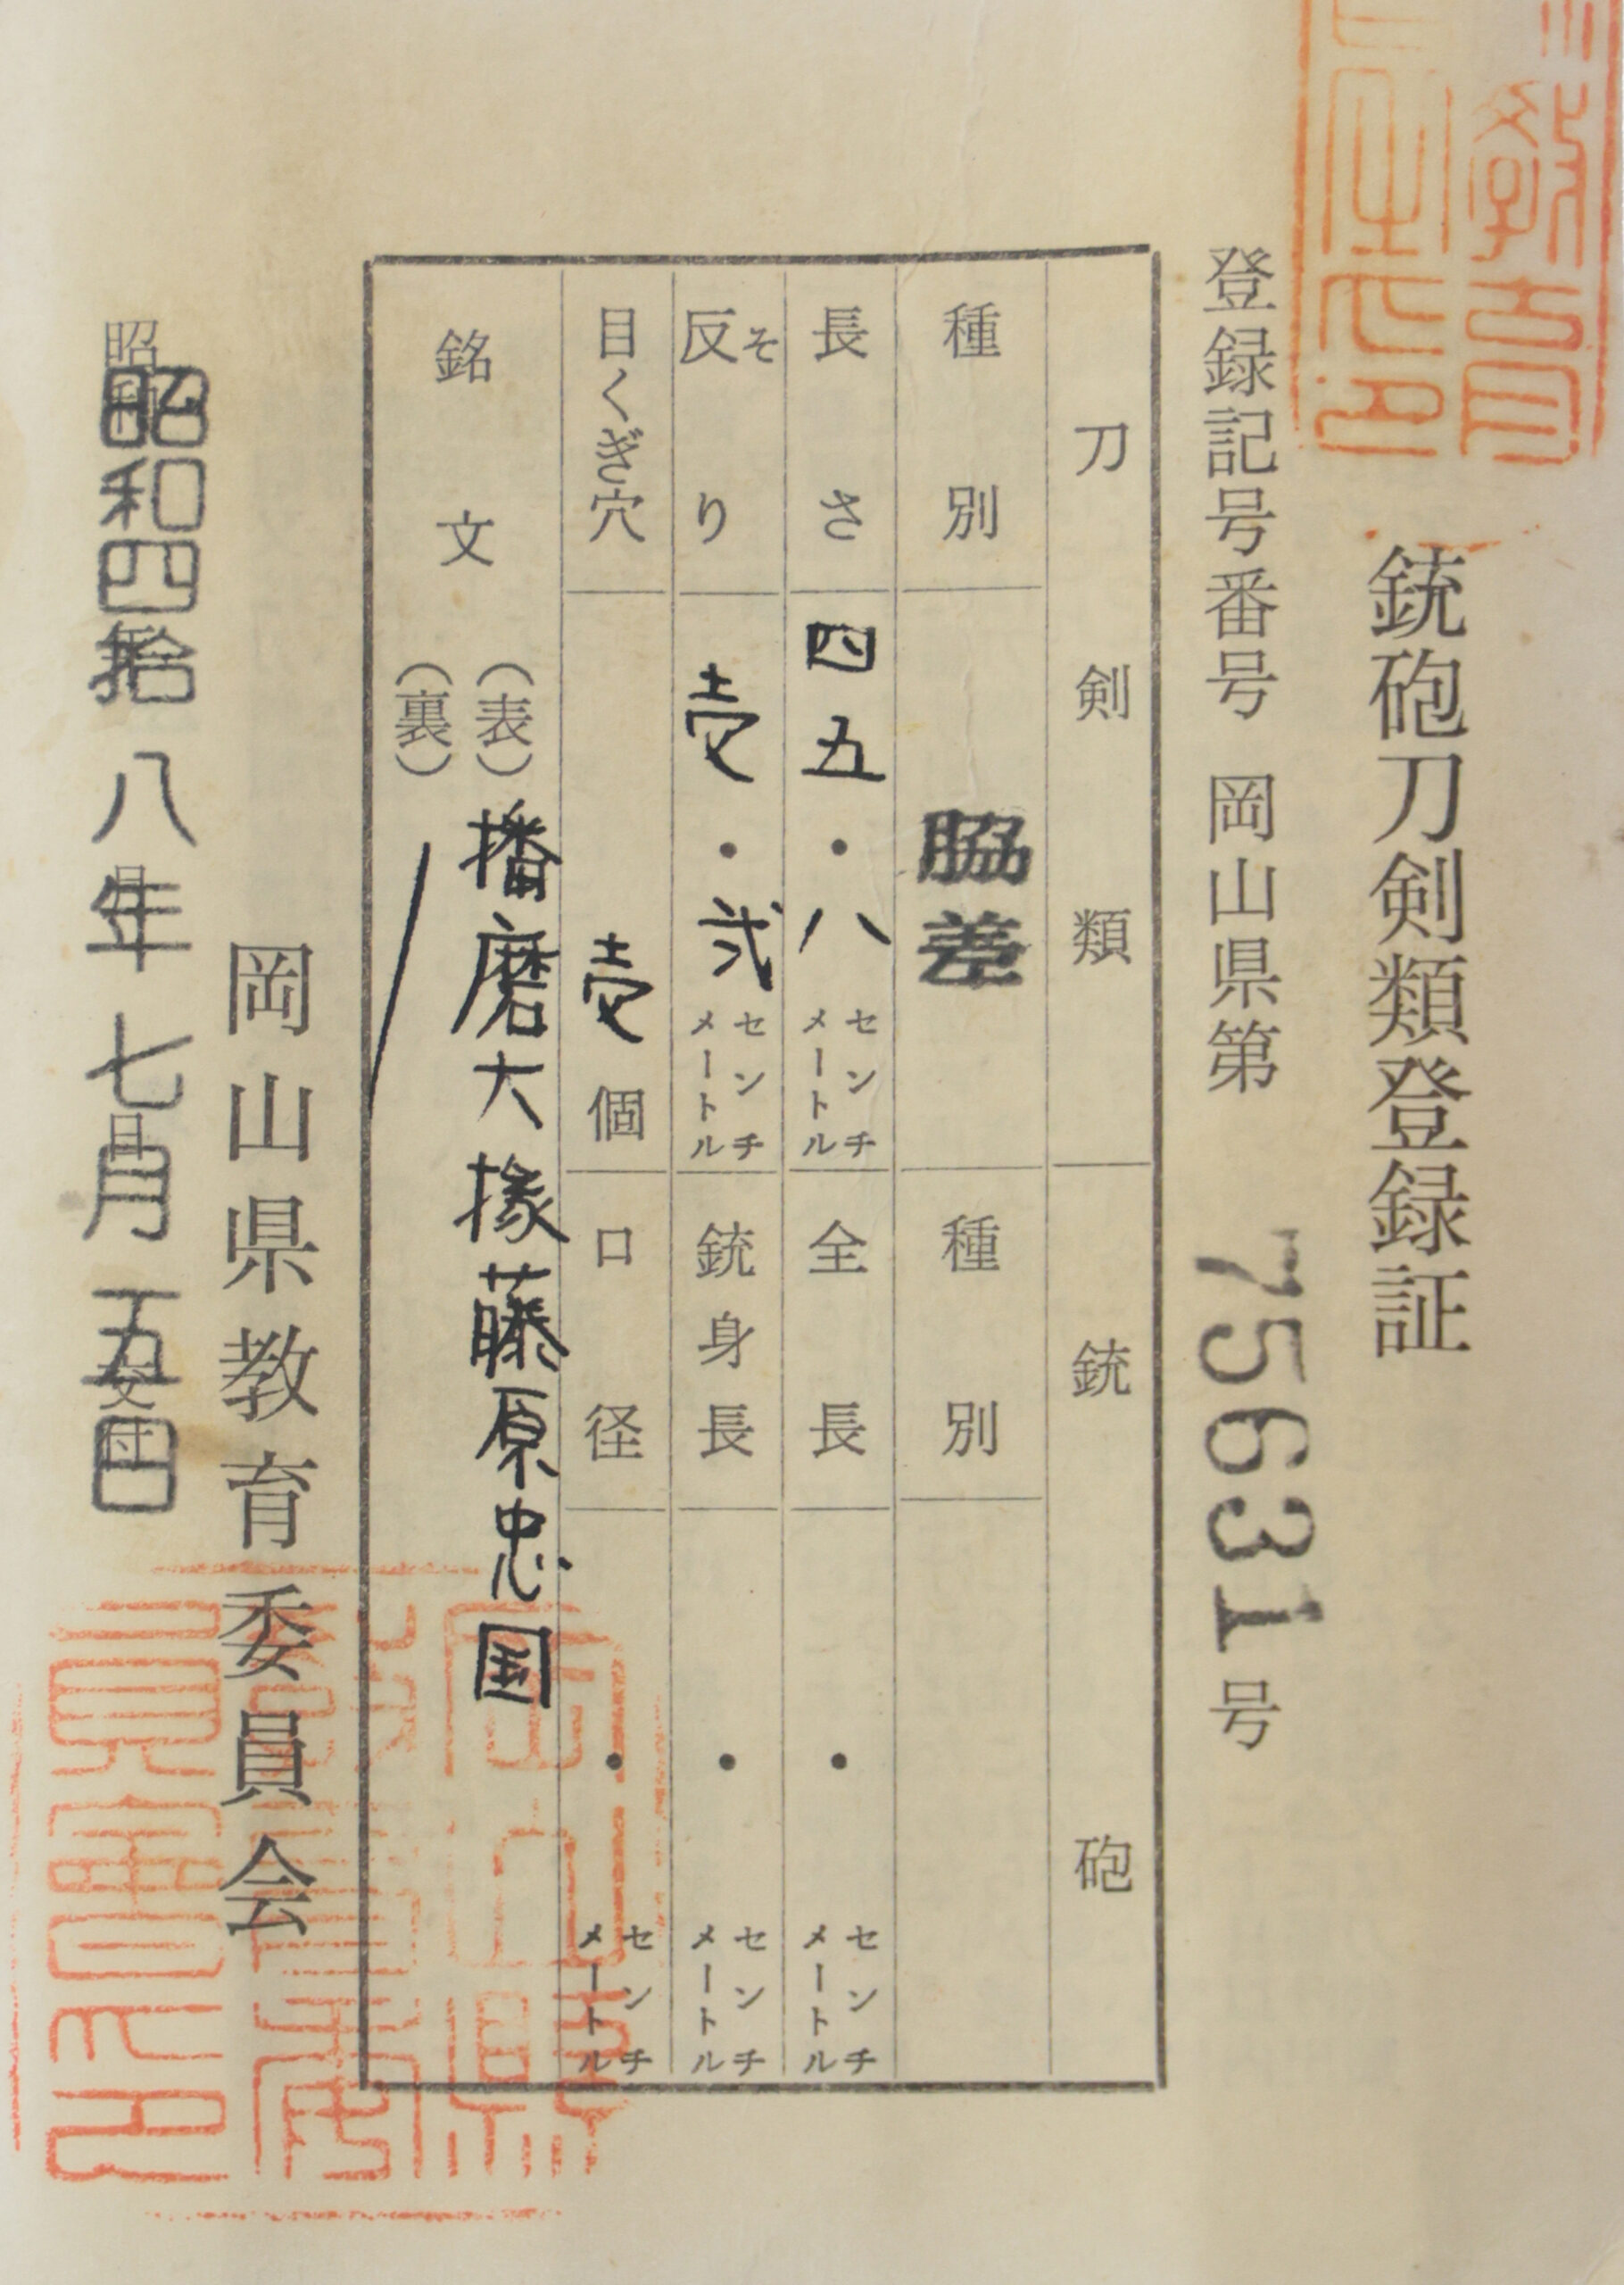 銃砲刀剣類登録証
登録記号番号 岡山県第 75631号
刀剣類
銃砲
種別 脇差
種別
長さ 四五・八 センチメートル
全長 ・ センチメートル
反り そ 壱・弐 センチメートル
銃身長 ・ センチメートル
目くぎ穴 壱個
口径 ・ センチメートル
銘文 (表) 播磨大掾藤原忠国
(裏)
岡山県教育委員会
昭和四拾八年七月五日